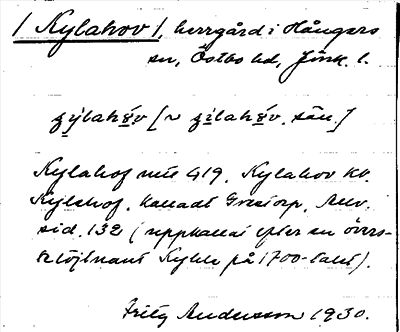 / Kylahov /, herrgård i Hångers
sn, Östbo hd, Jönk. l.
Kylahof mtl 419. Kylahov KV.
Kylahof, kalladt Grestorp, Allv.
sid. 132 (uppkallat efter en övers-
telöjtnant Kyhle på 1700-talet).
Fritz Andersson 1930.